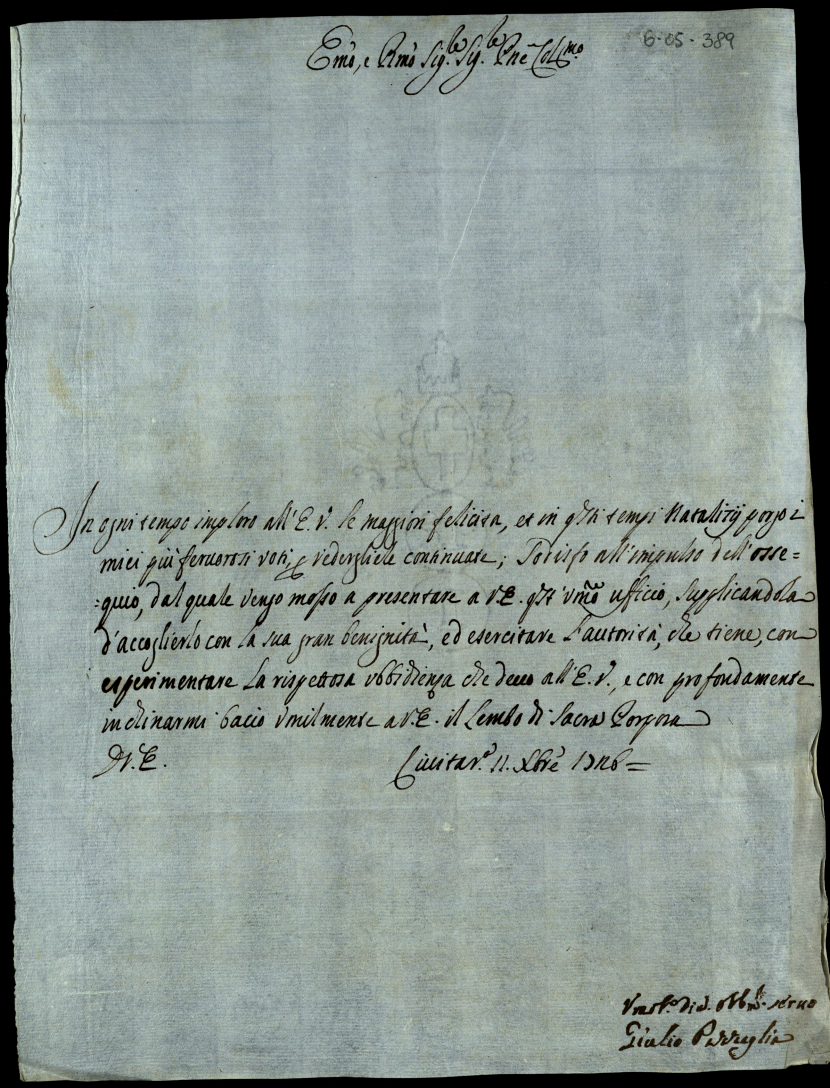 6-05-389
Emo, e Rmo Sig.re Sig.re Pne Colmo.
In ogni tempo imploro all'E. V. le maggiori felicità, et in q'sti tempi Natalizij porgo i
miei più fervorosi voti, p vedergliele continuate; Sodisfo all'impulso dell'osse=
=quio, dal quale vengo mosso a presentare a V.E. q'st' vmo ufficio, supplicandola
d'accoglierlo con la sua gran benignità, ed esercitare l'autorità, che tiene, con
esperimentare la rispettosa vbbidienza che devo all'E. V., e con profondamente
inchinarmi bacio vmilmente a V.E. il Lembo di Sacra Porpora
D V. E. Civitav.a 11. Xbre 1726=
Vmo diu. obb.mo seruo
Giulio